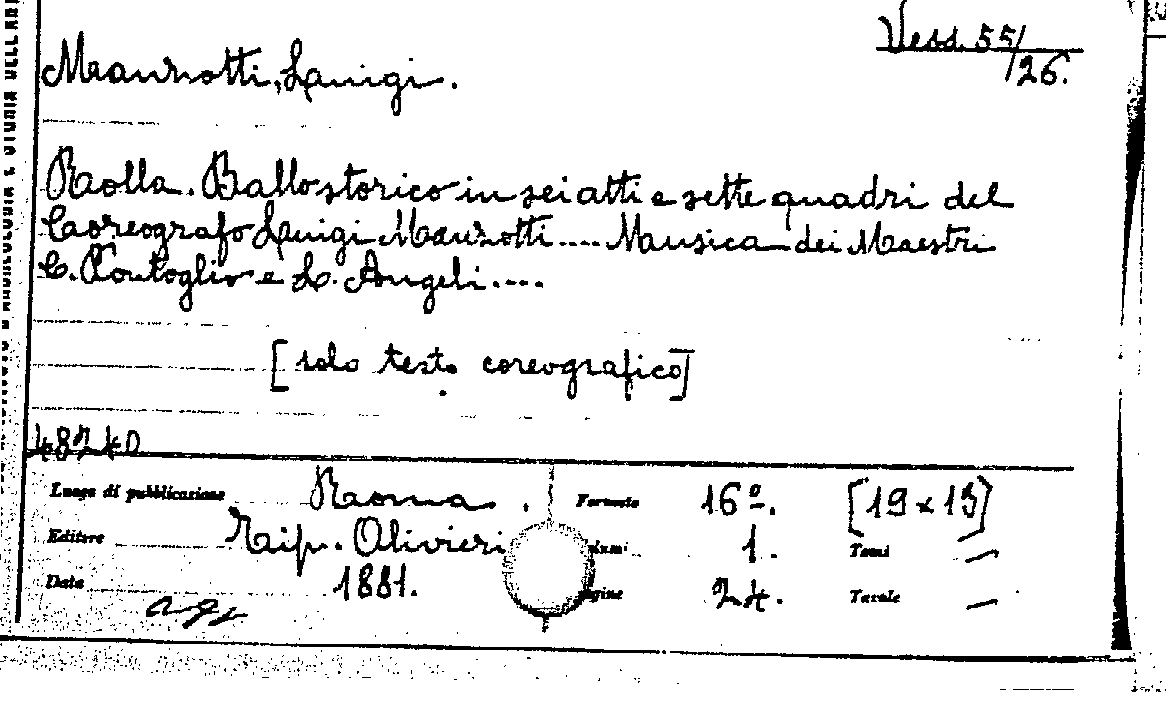 Vess. 55/26.
Manzotti, Luigi.
Rolla. Ballo storico in sei atti e sette quadri del
Coreografo Luigi Manzotti.... Musica dei Maestri
C. Pontoglio e L. Angeli....
[solo testo coreografico]
48240
Luogo di pubblicazione Roma. Formato 16º. [19 x 13]
Editore Tip. Olivieri 1. Tomi —
Data 1881. 24. Tavole —